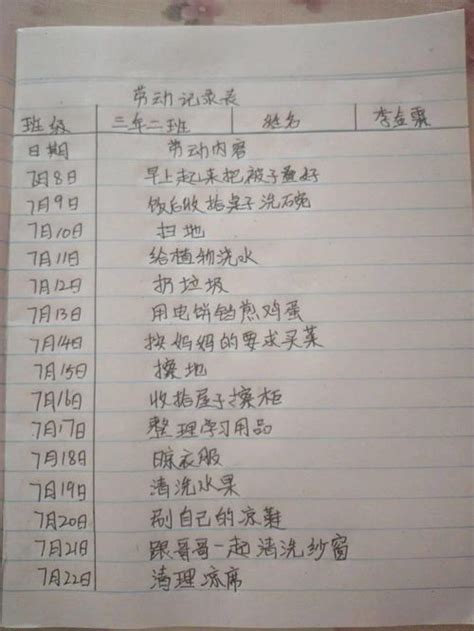 劳动记录表
班级 三年二班 姓名 李金霖
日期 劳动内容
7月8日 早上起来把被子叠好
7月9日 饭后收拾桌子洗碗
7月10日 扫地
7月11日 给植物浇水
7月12日 扔垃圾
7月13日 用电饼铛煎鸡蛋
7月14日 按妈妈的要求买菜
7月15日 擦地
7月16日 收拾屋子擦柜
7月17日 整理学习用品
7月18日 晾衣服
7月19日 清洗水果
7月20日 刷自己的凉鞋
7月21日 跟哥哥一起清洗纱窗
7月22日 清理凉席